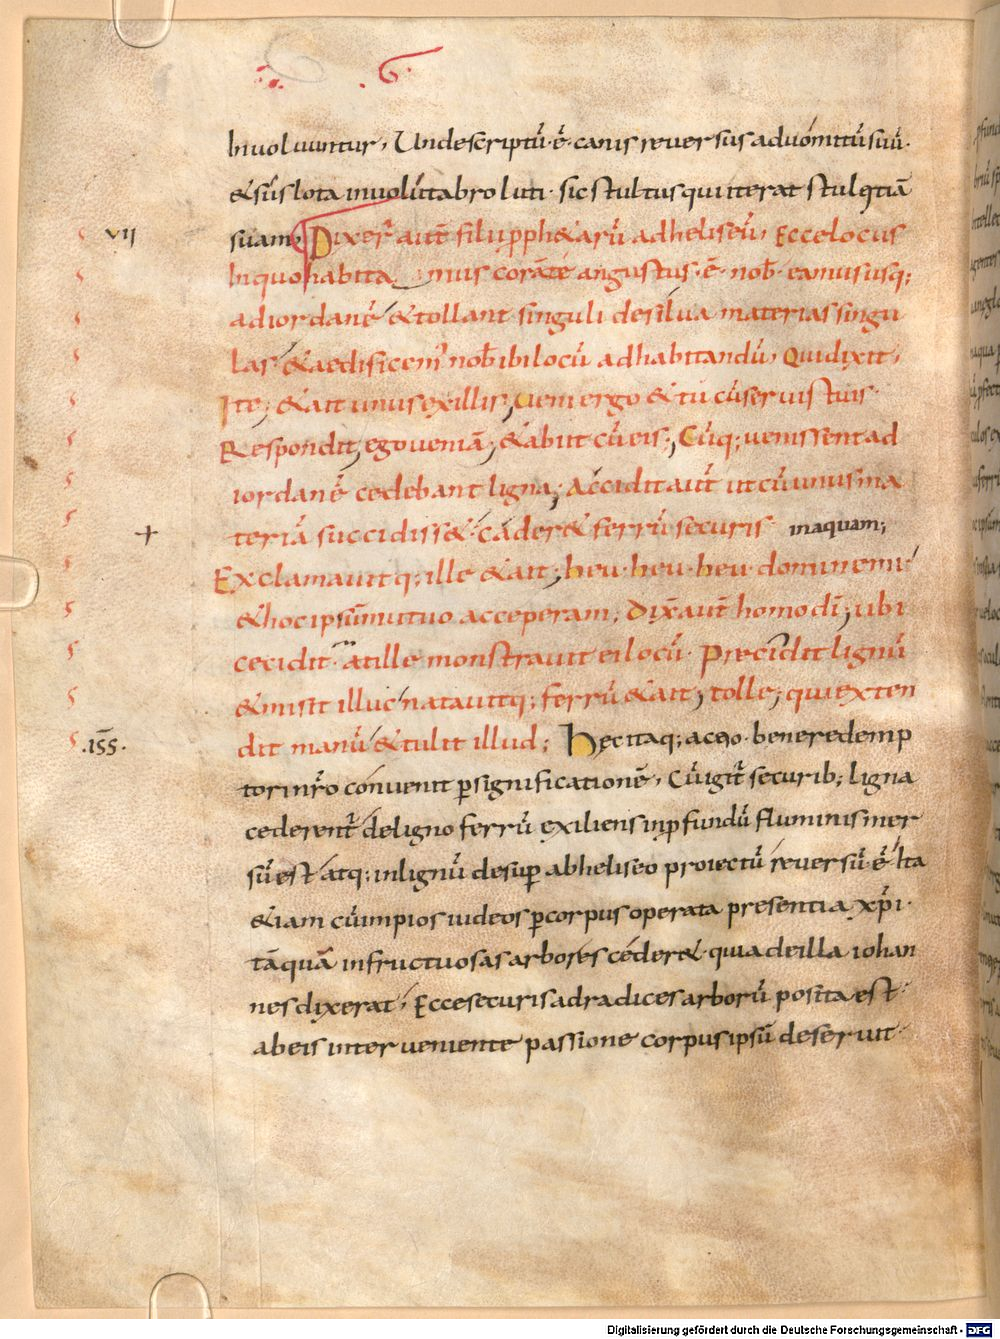 Inuoluuntur, Undescriptū ē canis reuersus aduomitū suū.
& sus lota inuolutabro luti. sic stultus qui iterat stultitiā
vii suam; Dixer̄ aut̄ filii pph&arū adheliseū, Ecce locus
In quo habitamus corāte angustus ē nob̄. eamus usq;
ad iordanē & tollant singuli de silua materias singu
las & aedificem' nob̄ ibi locū ad habitandū, Qui dixit,
Ite; & ait unus ex illis, ueni ergo & tu cū seruis tuis.
Respondit, ego ueniā; & abiit cū eis; Cūq; uenissent ad
iordanē cedebant ligna; Accidit aut̄ ut cū unus ma
+ teriā succidiss& cader& ferrū securis inaquam;
Exclamauitq; ille & ait; heu heu heu domine mi
& hoc ipsū mutuo acceperam; Dix̄ aut̄ homo dī; ubi
cecidit at ille monstrauit ei locū. Precidit lignū
& misit illuc natauitq; ferrū & ait; tolle; qui exten
.iss. dit manū & tulit illud; Hęc itaq; actio bene redemp
tori nr̄o conuenit ꝑsignificationē, Cū igit̄ securib; ligna
cederent̄ de ligno ferrū exiliens inp̱fundū fluminis mer
sū est atq; in lignū desuꝑ abheliseo proiectū reuersū ē Ita
&iam cū impios iudeos ꝑcorpus operata presentia xp̄i.
tāquā infructuosas arbores ceder& quia de illa iohan
nes dixerat, Ecce securis adradices arborū posita est
abeis interueniente passione corpus ipsū deseruit
Digitalisierung gefördert durch die Deutsche Forschungsgemeinschaft - DFG